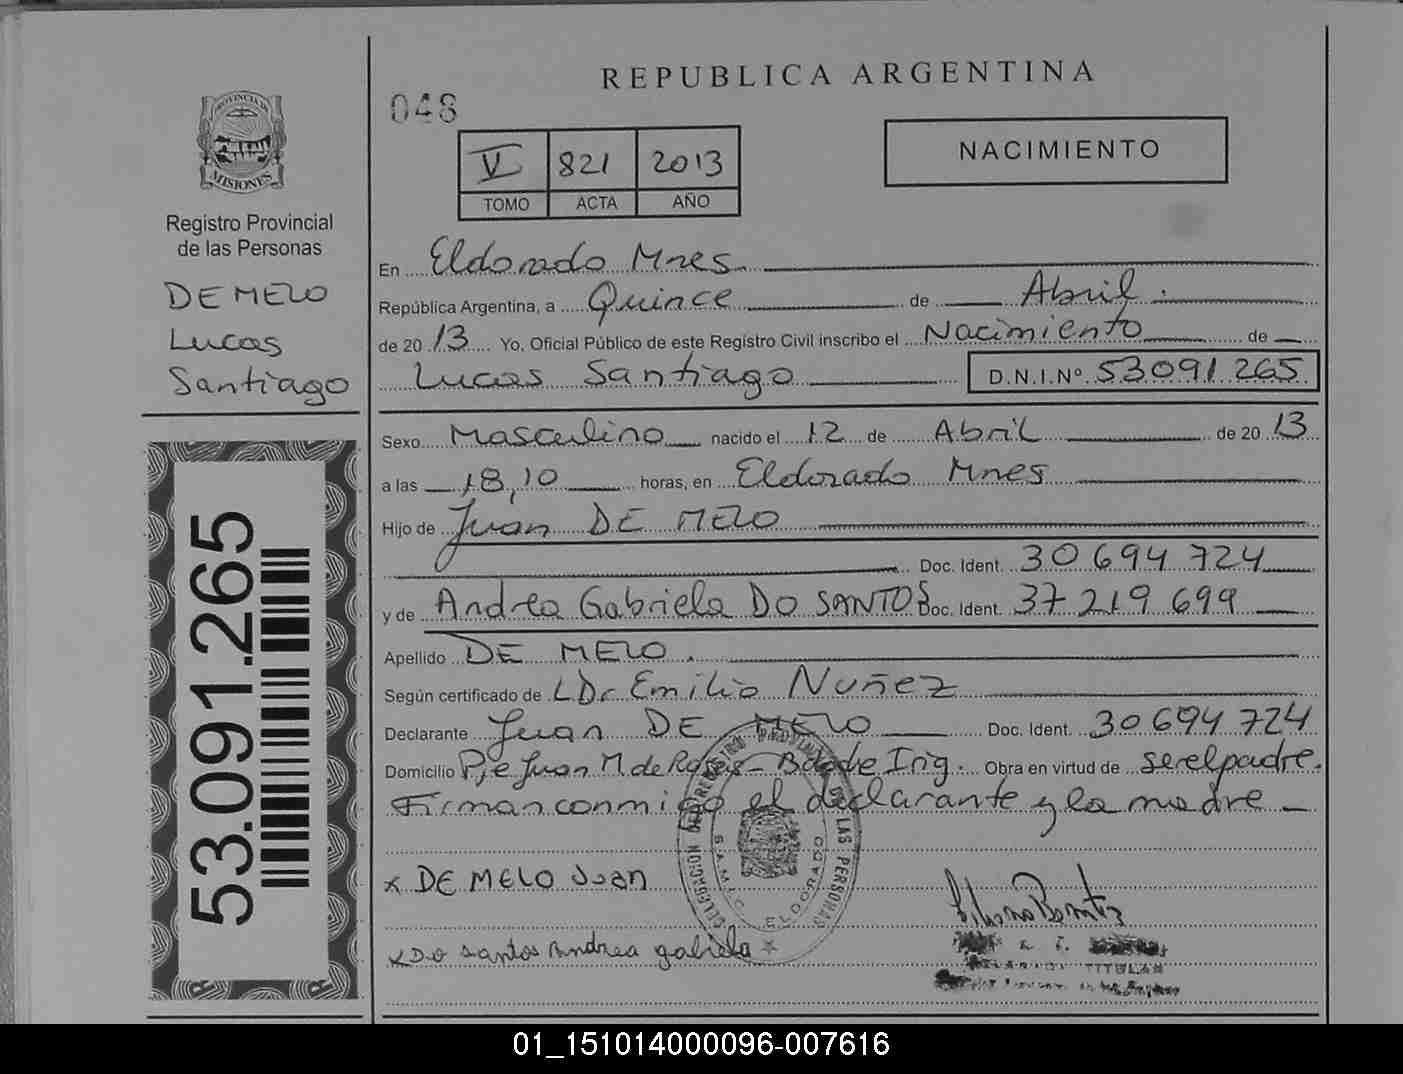 REPUBLICA ARGENTINA
048
NACIMIENTO
V 821 2013
TOMO ACTA AÑO
PROVINCIA DE
MISIONES
Registro Provincial
de las Personas
DE MELO
Lucas
Santiago
53.091.265
En Eldorado Mnes
República Argentina, a Quince de Abril.
de 2013 Yo, Oficial Público de este Registro Civil inscribo el Nacimiento de
Lucas Santiago D.N.I.Nº 53091265
Sexo Masculino nacido el 12 de Abril de 2013
a las 18,10 horas, en Eldorado Mnes
Hijo de Juan DE MELO
Doc. Ident. 30 694 724
y de Andrea Gabriela DO SANTOS Doc. Ident. 37 219 699
Apellido DE MELO.
Según certificado de Dr Emilio Nuñez
Declarante Juan DE MELO Doc. Ident. 30694724
Domicilio Pje Juan M de Rosas - Irig. Obra en virtud de serelpadre.
Firman conmigo el declarante y la madre
x DE MELO Juan
x DO santos Andrea gabriela
DE LAS PERSONAS
S.A.M.I.C. ELDORADO
TITULAR
01_151014000096-007616